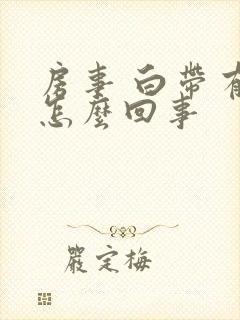 房事 白帶 有
怎麼回事
嚴定梅